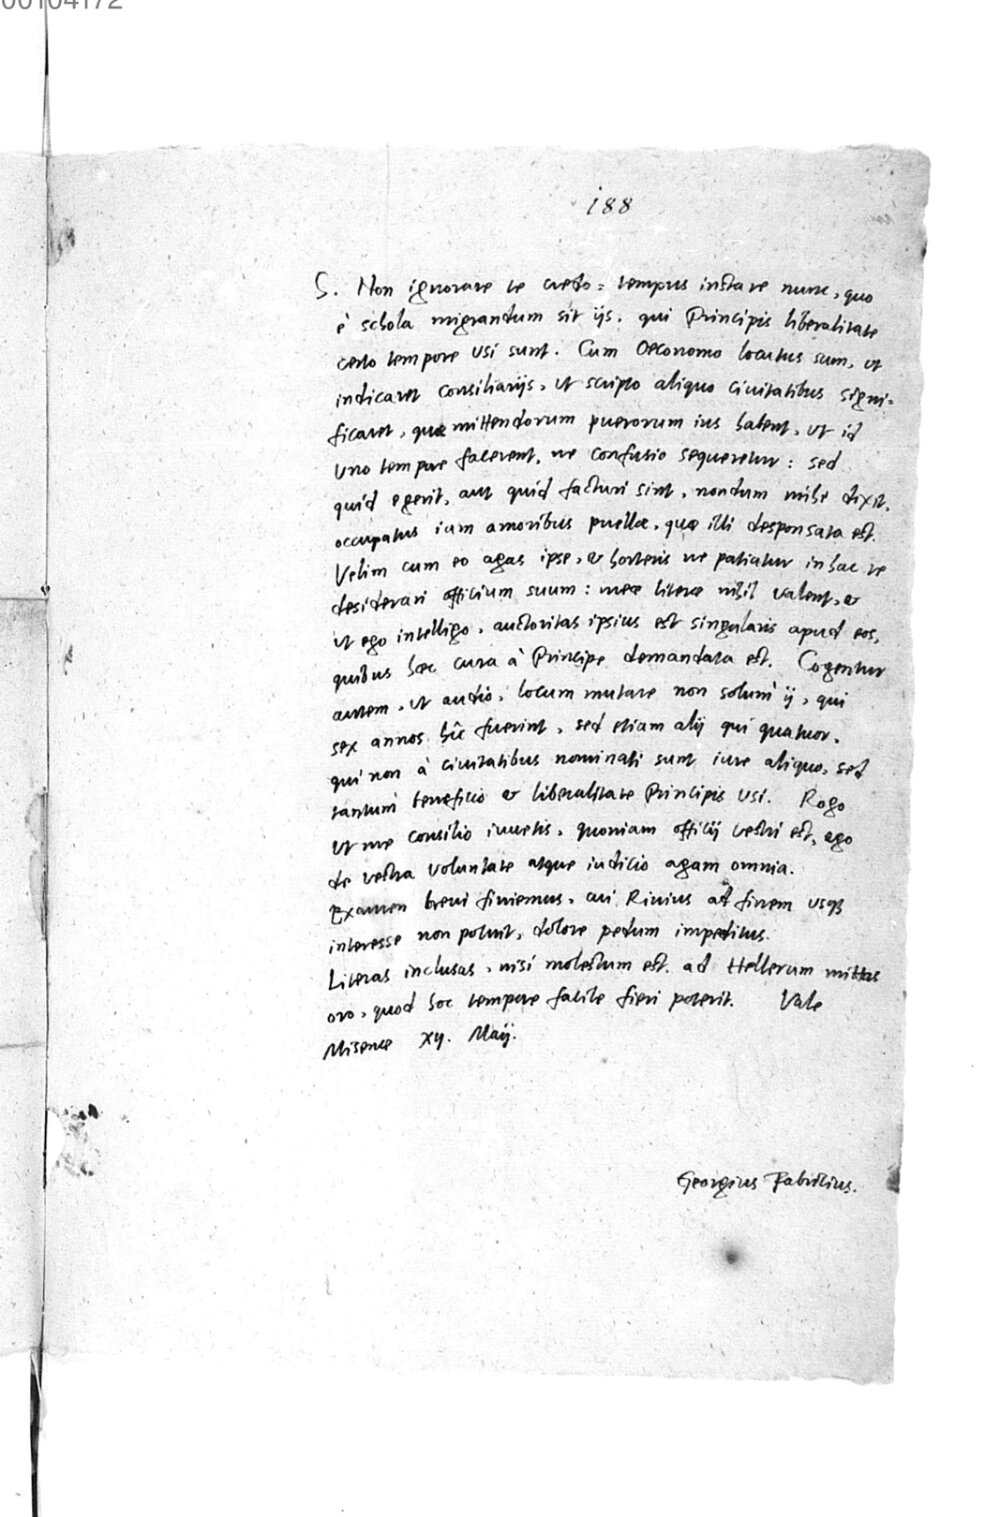 00104172
188
S. Non ignorare te credo: tempus instare nunc, quo
è schola migrandum sit ijs, qui Principis liberalitate
certo tempore usi sunt. Cum Oeconomo locutus sum, ut
indicaret consiliarijs, ut scripto aliquo civitatibus signi-
ficaret, quæ mittendorum puerorum ius habent, ut id
uno tempore facerent, ne confusio sequeretur: sed
quid egerit, aut quid facturi sint, nondum mihi dixit,
occupatus iam amoribus puellæ, quæ illi desponsata est.
Velim cum eo agas ipse, & horteris ne patiatur in hac re
desiderari officium suum: meæ literæ nihil valent, &
ut ego intelligo, auctoritas ipsius est singularis apud eos,
quibus hæc cura à Principe demandata est. Cogentur
autem, ut audio, locum mutare non solum ij, qui
sex annos hîc fuerint, sed etiam alij qui quatuor,
qui non à civitatibus nominati sunt iure aliquo, sed
tantum beneficio & liberalitate Principis usi. Rogo
ut me consilio iuvetis, quoniam officij vestri est, ego
de vestra voluntate atque iudicio agam omnia.
Examen brevi finiemus, cui Rivius ad finem usq3
interesse non potuit, dolore pedum impeditus.
Literas inclusas, nisi molestum est, ad Hellerum mittas
oro, quod hoc tempore facile fieri poterit. Vale
Misenæ xij. Maij.
Georgius Fabricius.